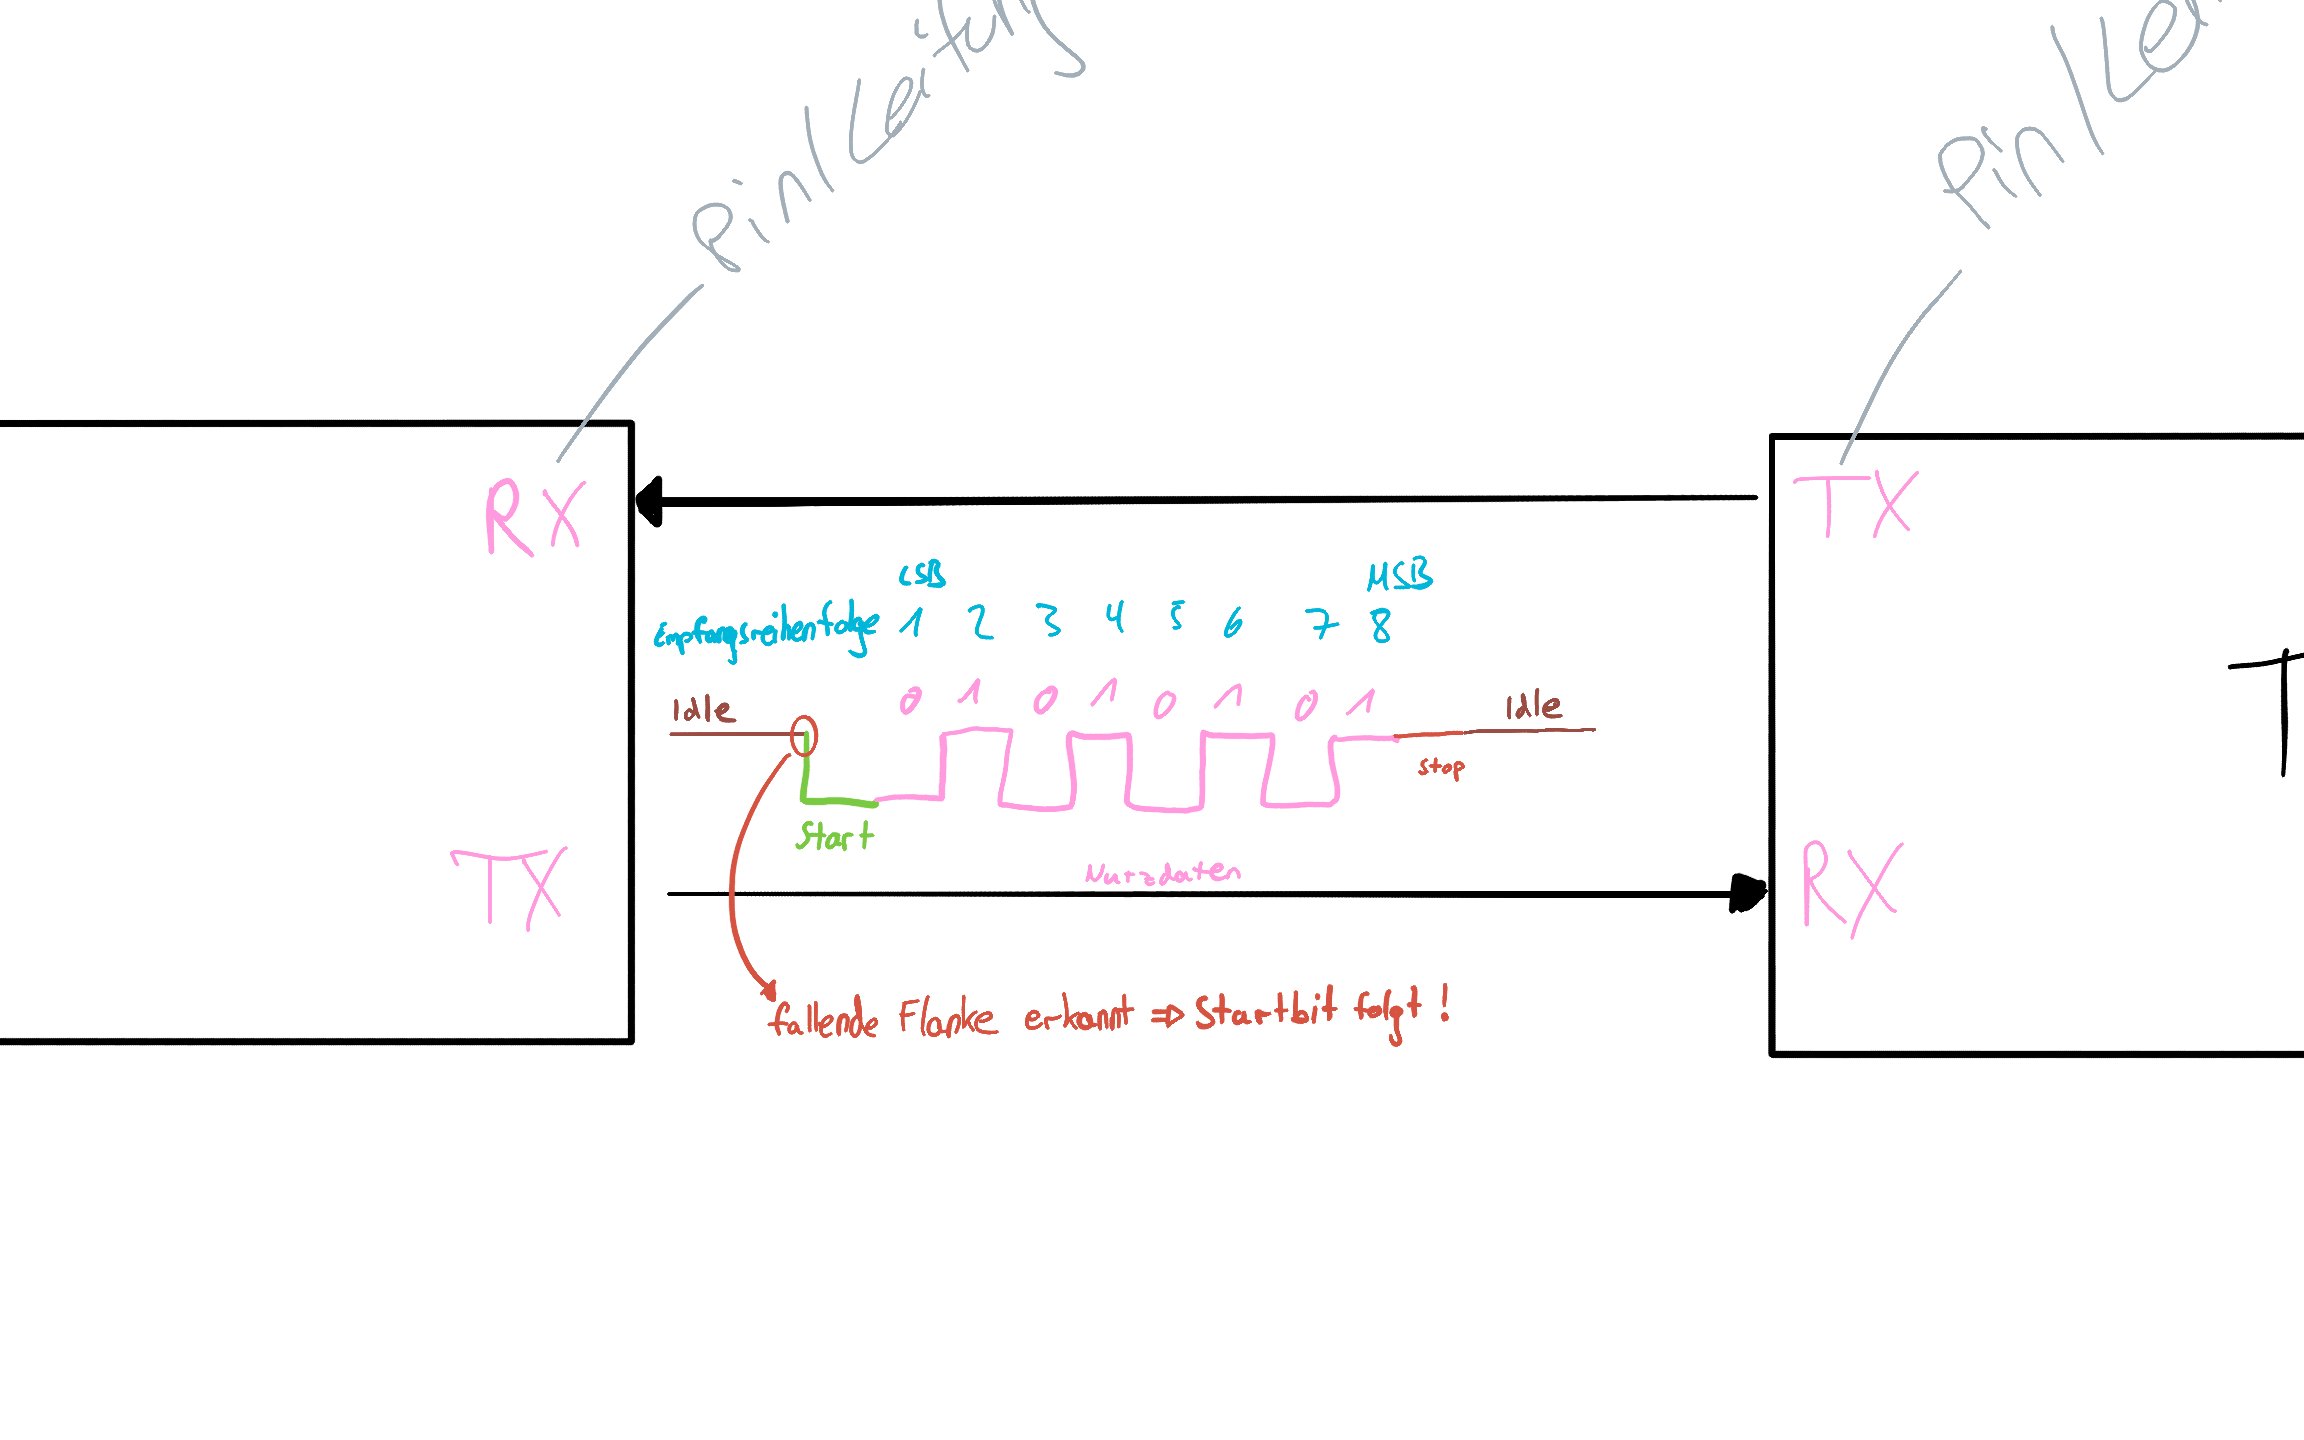 Pin/Leitung
Pin/Lei
RX
TX
LSB
MSB
Empfangsreihenfolge 1 2 3 4 5 6 7 8
0 1 0 1 0 1 0 1
Idle
Idle
Stop
Start
T
Nutzdaten
TX
RX
fallende Flanke erkannt ⇒ Startbit folgt!